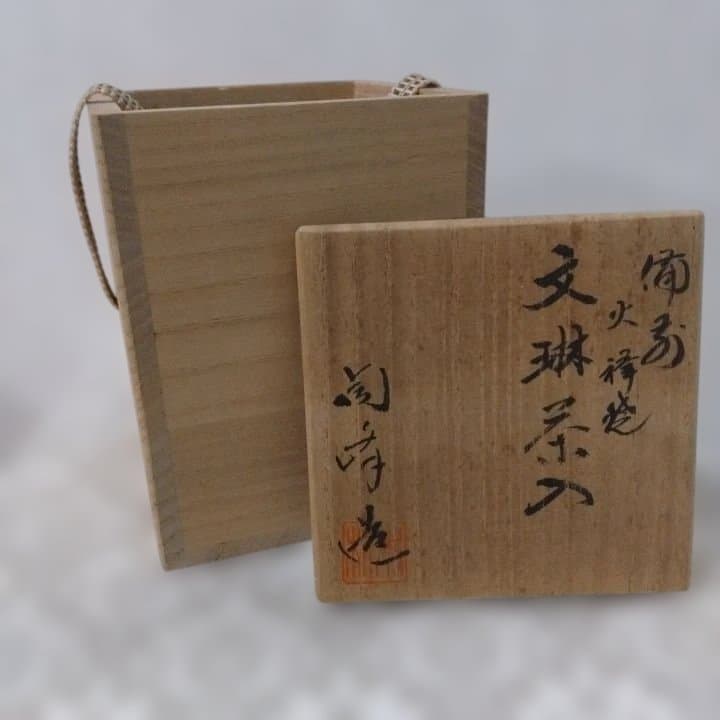 備前
火襷焼
文琳茶入
峰造